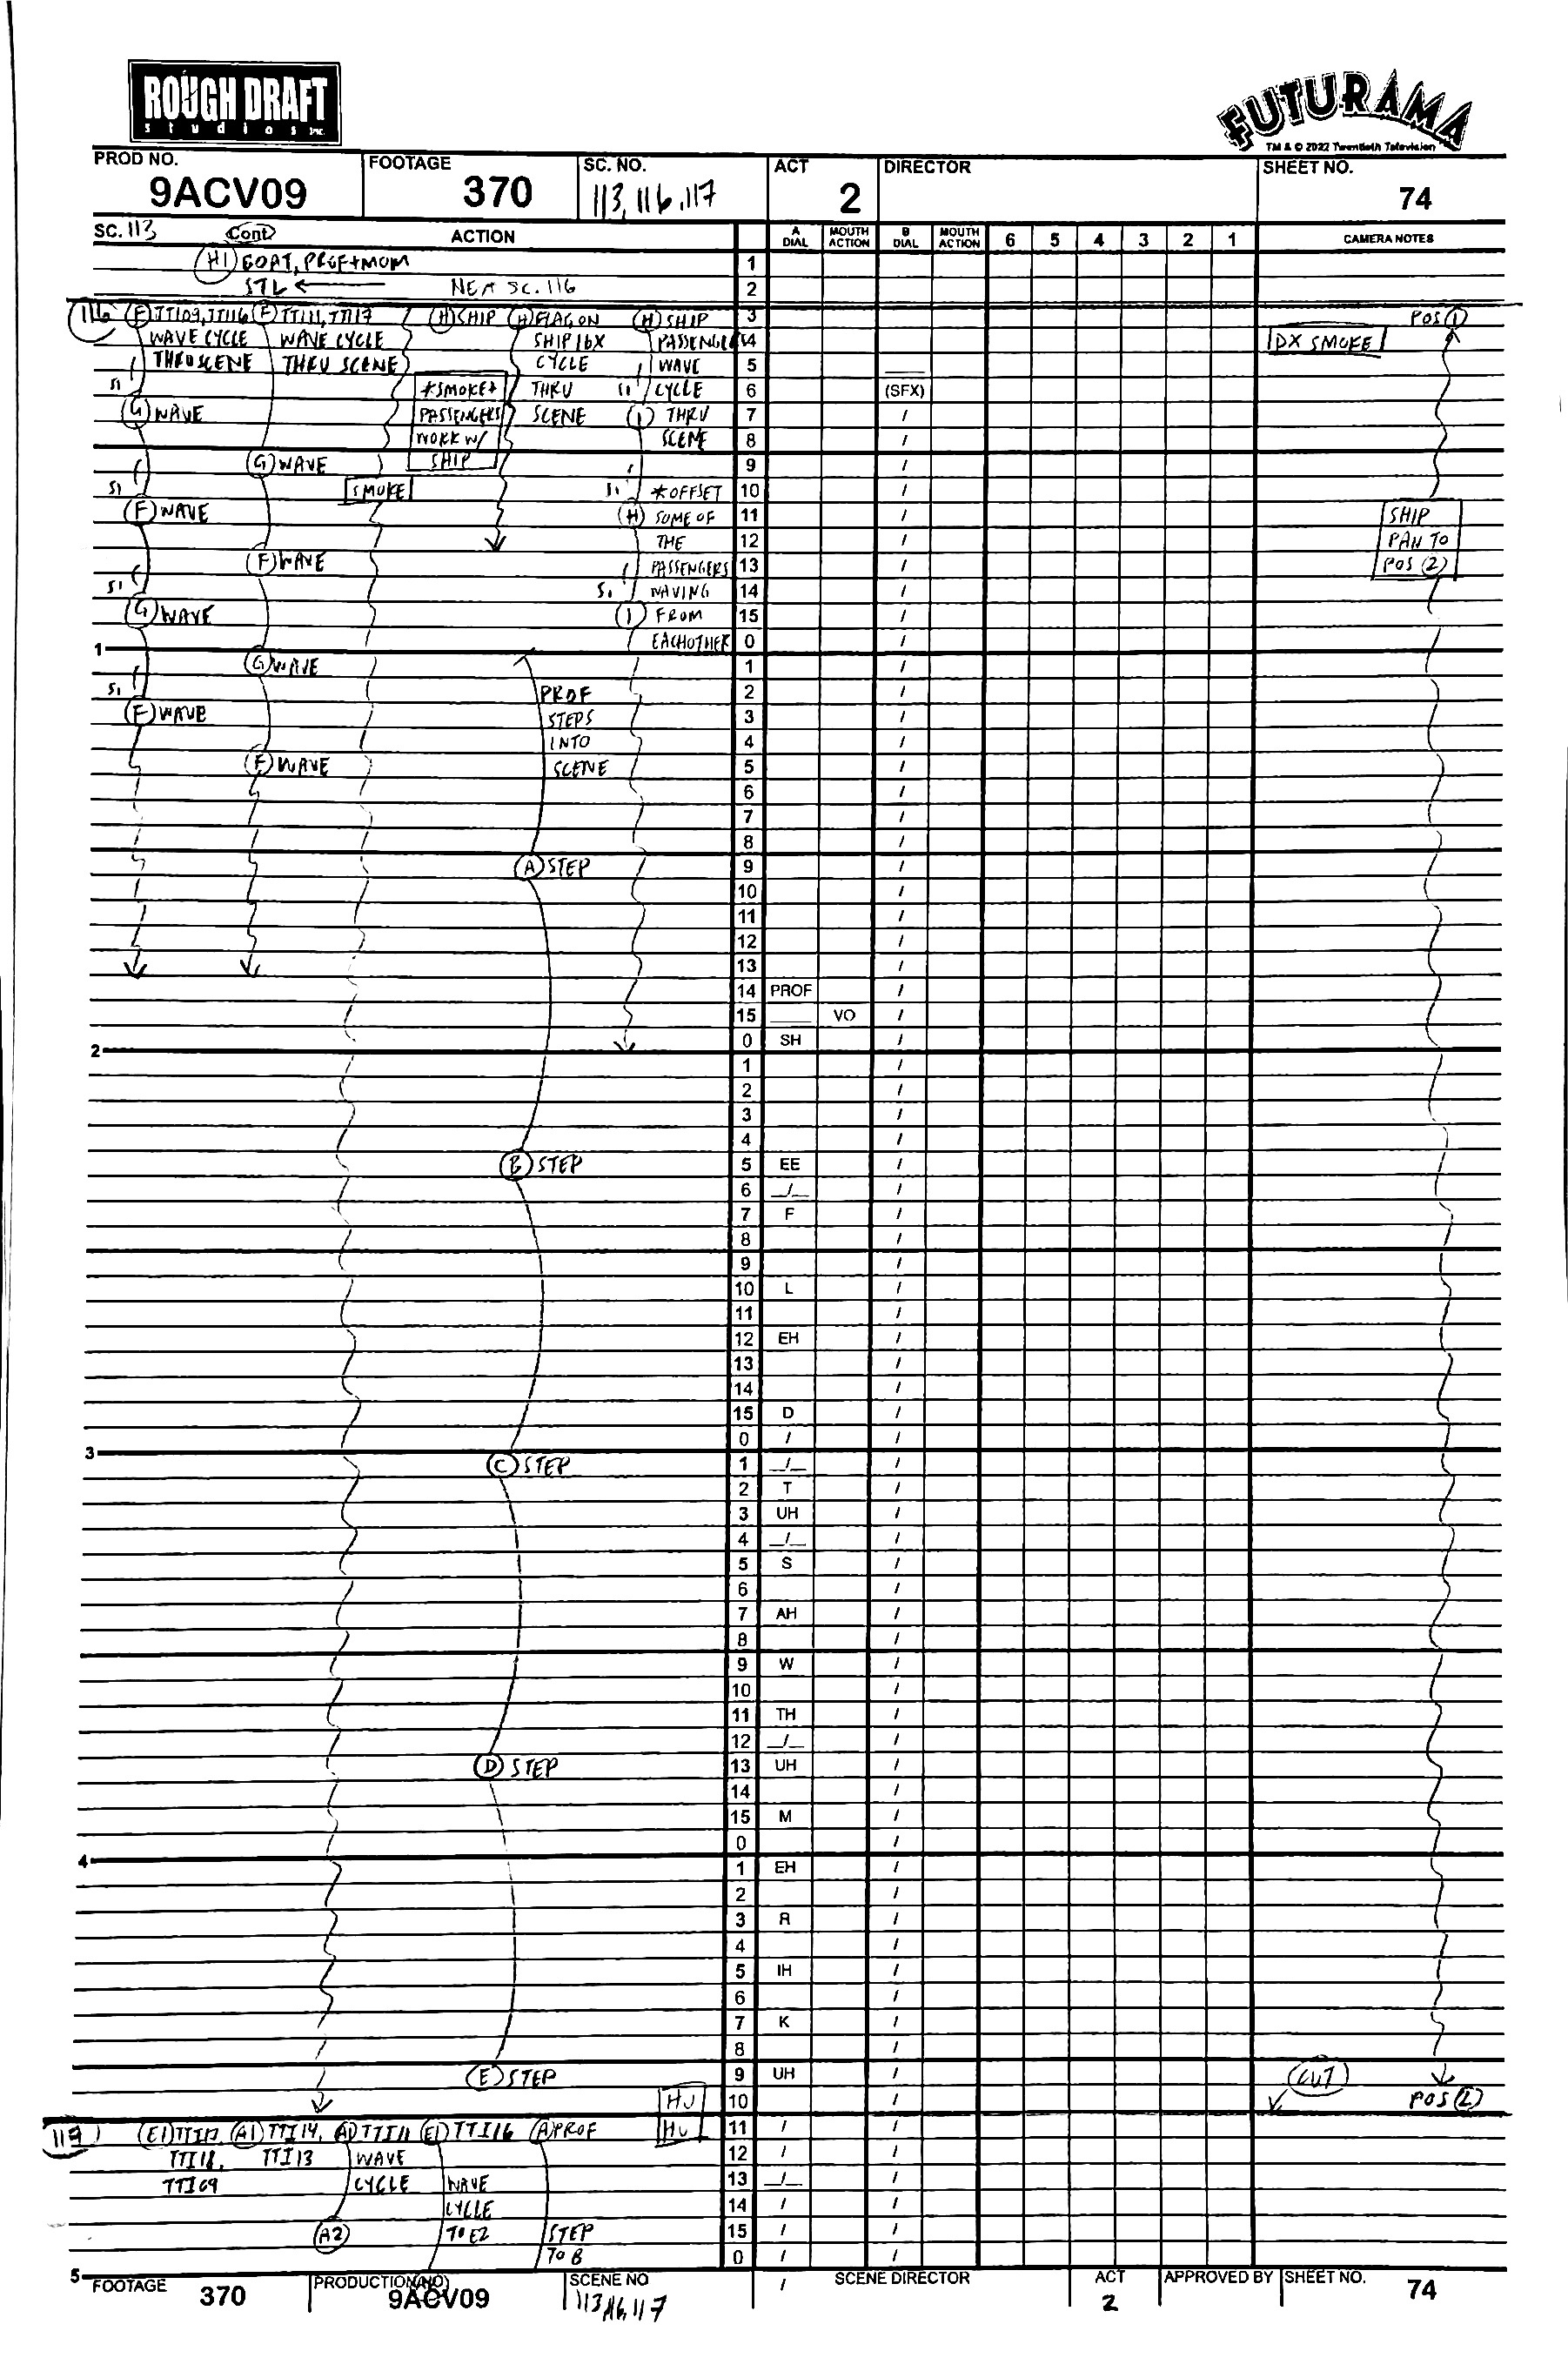 ROUGH DRAFT
studios inc.
FUTURAMA
TM & © 2022 Twentieth Television
PROD NO. FOOTAGE SC. NO. ACT DIRECTOR SHEET NO.
9ACV09 370 113, 116, 117 2 74
SC. 113 Cont ACTION A DIAL MOUTH ACTION B DIAL MOUTH ACTION 6 5 4 3 2 1 CAMERA NOTES
H1 GOAT, PROF + MOM 1
STL ← SC. 116 2
116 F TTI09, TTI16 F TTI11, TTI17 H SHIP H FLAG ON H SHIP 3 POS 1
WAVE CYCLE WAVE CYCLE SHIP 16X PASSENGER 4 DX SMOKE
THRU SCENE THRU SCENE CYCLE WAVE 5
S1 *SMOKE + THRU S1 CYCLE 6 (SFX)
G WAVE PASSENGERS SCENE I THRU 7 /
WORK W/ SCENE 8 /
G WAVE SHIP 9 /
S1 SMOKE S1 *OFFSET 10 /
F WAVE H SOME OF 11 / SHIP
THE 12 / PAN TO
F WAVE PASSENGERS 13 / POS 2
S1 S1 WAVING 14 /
G WAVE I FROM 15 /
1 EACHOTHER 0 /
G WAVE 1 /
S1 PROF 2 /
F WAVE STEPS 3 /
INTO 4 /
F WAVE SCENE 5 /
6 /
7 /
8 /
A STEP 9 /
10 /
11 /
12 /
13 /
14 PROF /
15 VO /
2 0 SH /
1 /
2 /
3 /
4 /
B STEP 5 EE /
6 _/_ /
7 F /
8 /
9 /
10 L /
11 /
12 EH /
13 /
14 /
15 D /
3 0 / /
C STEP 1 _/_ /
2 T /
3 UH /
4 _/_ /
5 S /
6 /
7 AH /
8 /
9 W /
10 /
11 TH /
12 _/_ /
D STEP 13 UH /
14 /
15 M /
4 0 /
1 EH /
2 /
3 R /
4 /
5 IH /
6 /
7 K /
8 /
E STEP 9 UH / CUT
HU 10 / POS 2
117 E1 TTI17, A1 TTI14, A TTI11 E1 TTI16 A PROF HU 11 / /
TTI18, TTI13 WAVE 12 / /
TTI09 CYCLE WAVE 13 _/_ /
CYCLE 14 / /
A2 TO E2 STEP 15 / /
TO B 0 / /
5 FOOTAGE 370 PRODUCTION (NO) 9ACV09 SCENE NO 113, 116, 117 / SCENE DIRECTOR ACT 2 APPROVED BY SHEET NO. 74